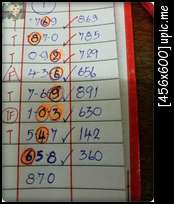 1
769 ✓ 863
T 870 ✓ 785
T 0-92 ✓ 729
F 4-36 ✓ 656
T 7-69 ✓ 891
TF 1-03 ✓ 630
T 547 ✓ 142
658 ✓ 360
870
[456x600] upic.me